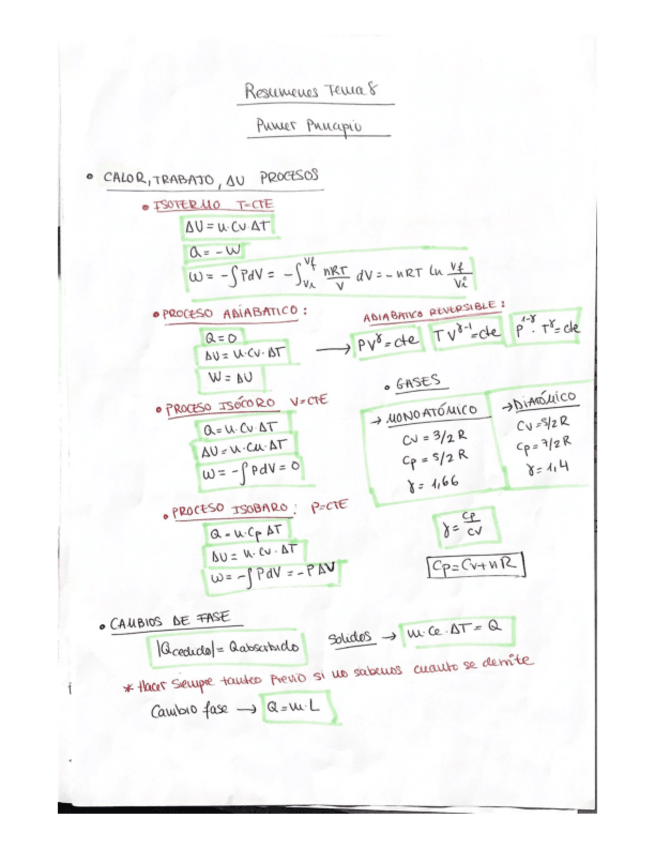 Resumenes Tema 8
Primer Principio
• CALOR, TRABAJO, ΔU PROCESOS
• ISOTERMO T=CTE
ΔU = n·Cv·ΔT
Q = -W
W = -∫PdV = -∫Vi^Vf nRT/V dV = -nRT ln Vf/Vi
• PROCESO ADIABATICO:
Q=0
ΔU = n·Cv·ΔT
W = ΔU
ADIABATICO REVERSIBLE:
→ PV^γ=cte TV^γ-1=cte P^1-γ·T^γ=cte
• PROCESO ISÓCORO V=CTE
Q=n·Cv·ΔT
ΔU=n·Cv·ΔT
W=-∫PdV=0
• GASES
→ MONOATÓMICO
Cv = 3/2 R
Cp = 5/2 R
γ = 1,66
→ DIATÓMICO
Cv=5/2 R
Cp=7/2 R
γ=1,4
γ = Cp/Cv
Cp=Cv+nR
• PROCESO ISOBARO: P=CTE
Q=n·Cp ΔT
ΔU = n·Cv·ΔT
W=-∫PdV = -PΔV
• CAMBIOS DE FASE
|Qcedido|= Qabsorbido
Solidos → m·Ce·ΔT = Q
* Hacer siempre tanteo previo si no sabemos cuanto se derrite
Cambio fase → Q=m·L